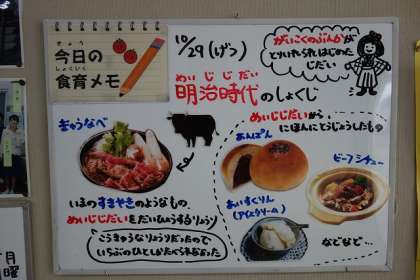 きょう
今日の
しょくいく
食育メモ
10/29(げつ)
めいじじだい
明治時代のしょくじ
がいこくのぶんかが
とりいれられはじめた
じだい
ぎゅうなべ
いまのすきやきのようなもの。
めいじじだいをだいひょうするりょうり
ごうかなりょうりだったので
いちぶのひとたべられなかった
めいじじだいから
にほんにとうじょうしたもの
あんぱん
ビーフシチュー
あいすくりん
(アイスクリーム)
などなど…
月曜